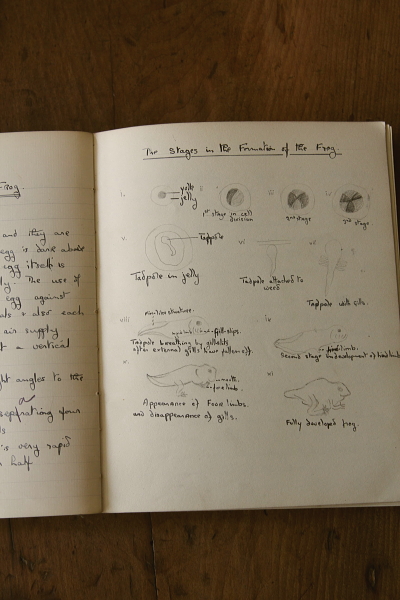 Frog
and they are
egg is dark above
egg itself is
The use of
egg against
also each
air supply
a vertical
right angles to the
separating four
is very rapid
half
The Stages in the Formation of the Frog.
i. yolk ii iii iv
jelly
1st stage in cell division
2nd stage
3rd stage
v. Tadpole vi
Tadpole in jelly
Tadpole attached to weed
Tadpole with gills.
viii ix
gill-slips.
Tadpole breathing by gillslits
after external gills have fallen off.
hind limb.
Second stage in development of hind limb
x. xi
mouth.
fore limb.
Appearance of Fore limbs.
and disappearance of gills.
Fully developed frog.